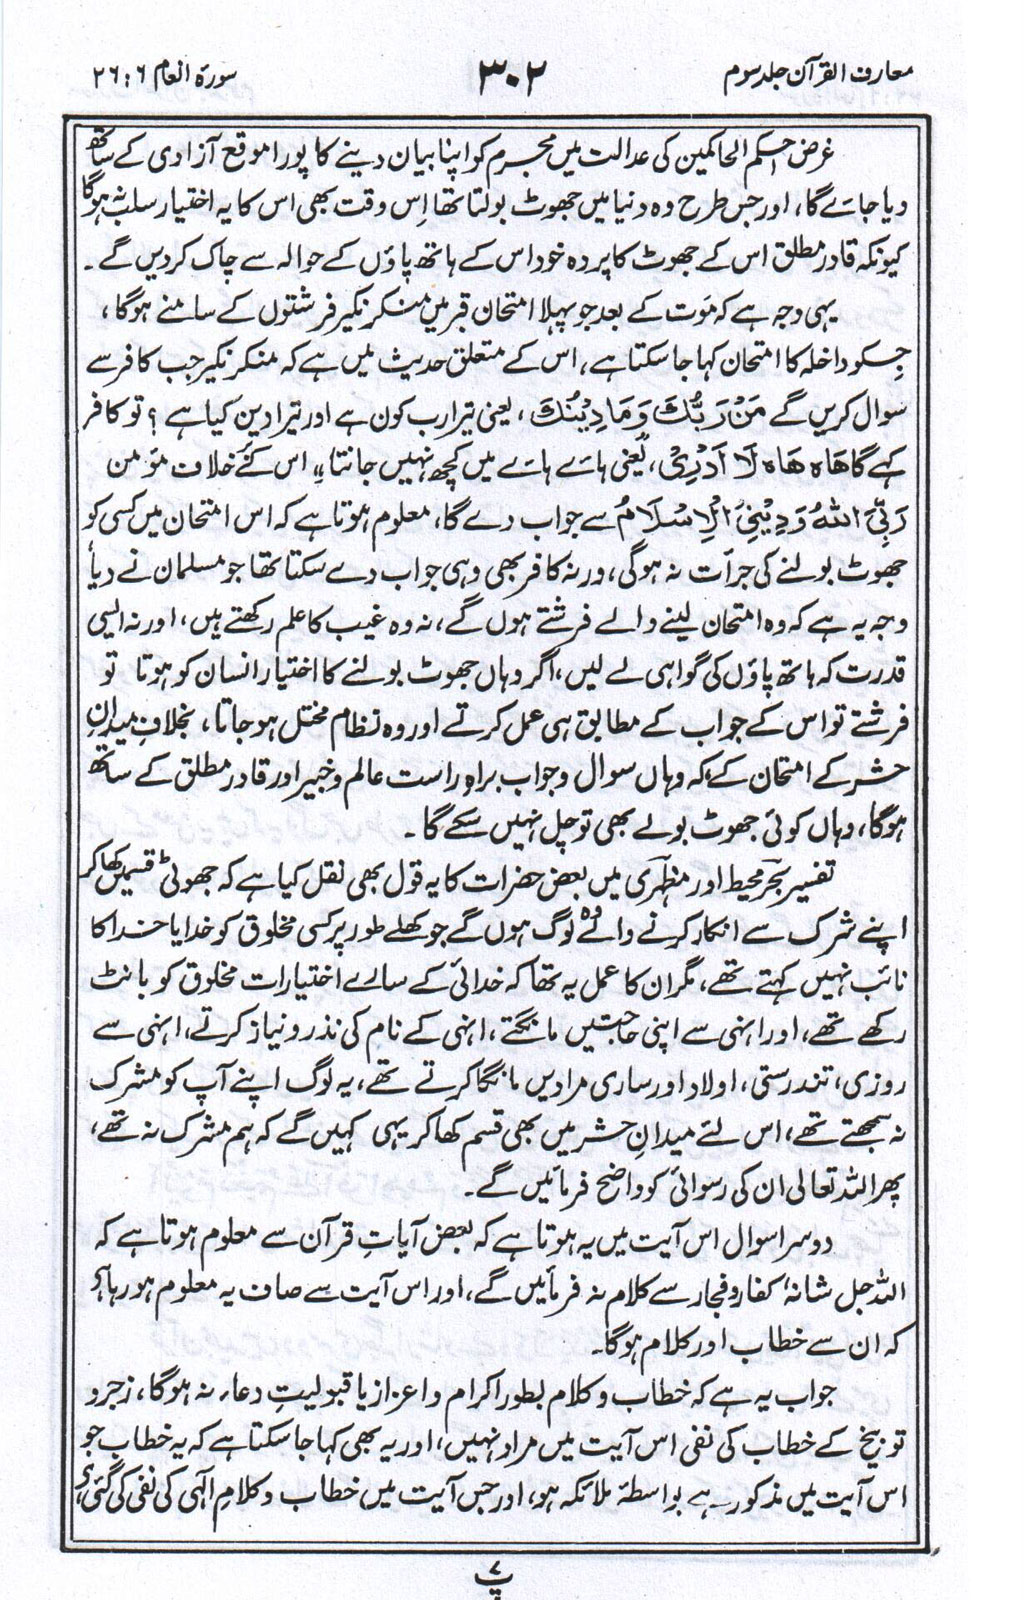 معارف القرآن جلد سوم
۳۰۲
سورۃ انعام ۶ : ۲۶
غرض احکم الحاکمین کی عدالت میں مجرم کو اپنا بیان دینے کا پورا موقع آزادی کے ساتھ
دیا جائے گا، اور جس طرح وہ دنیا میں جھوٹ بولتا تھا اِس وقت بھی اس کا یہ اختیار سلب نہ ہوگا
کیونکہ قادر مطلق اس کے جھوٹ کا پردہ خود اس کے ہاتھ پاؤں کے حوالہ سے چاک کردیں گے۔
یہی وجہ ہے کہ مَوت کے بعد جو پہلا امتحان قبر میں منکر نکیر فرشتوں کے سامنے ہوگا،
جِسکو داخلہ کا امتحان کہا جا سکتا ہے، اس کے متعلق حدیث میں ہے کہ منکر نکیر جب کافر سے
سوال کریں گے مَنْ رَبُّكَ وَمَا دِيْنُكَ، یعنی تیرا رب کون ہے اور تیرا دین کیا ہے؟ تو کافر
کہے گا هَاہ هَاہ لَا اَدْرِیْ، یعنی ہائے ہائے میں کچھ نہیں جانتا،، اس کے خلاف مؤمن
رَبِّیَ اللهُ وَدِیْنِیُ الْاِسْلَامُ سے جواب دے گا، معلوم ہوتا ہے کہ اس امتحان میں کسی کو
جھوٹ بولنے کی جرأت نہ ہوگی، ورنہ کافر بھی وہی جواب دے سکتا تھا جو مسلمان نے دیا،
وجہ یہ ہے کہ وہ امتحان لینے والے فرشتے ہوں گے، نہ وہ غیب کا علم رکھتے ہیں، اور نہ ایسی
قدرت کہ ہاتھ پاؤں کی گواہی لے لیں، اگر وہاں جھوٹ بولنے کا اختیار انسان کو ہوتا تو
فرشتے تو اس کے جواب کے مطابق ہی عمل کرتے اور وہ نظام مختل ہوجاتا، بخلافِ میدانِ
حشر کے امتحان کے، کہ وہاں سوال وجواب براہِ راست عالم وخبیر اور قادر مطلق کے ساتھ
ہوگا، وہاں کوئی جھوٹ بولے بھی تو چل نہیں سکے گا۔
تفسیر بحر محیط اور مظہری میں بعض حضرات کا یہ قول بھی نقل کیا ہے کہ جھوٹی قسمیں کھا کر
اپنے شرک سے انکار کرنے والے وہ لوگ ہوں گے جو کھلے طور پر کسی مخلوق کو خدا یا خدا کا
نائب نہیں کہتے تھے، مگر ان کا عمل یہ تھا کہ خدائی کے سارے اختیارات مخلوق کو بانٹ
رکھے تھے، اور انہی سے اپنی حاجتیں مانگتے، انہی کے نام کی نذر و نیاز کرتے، انہی سے
روزی، تندرستی، اولاد اور ساری مرادیں مانگا کرتے تھے، یہ لوگ اپنے آپ کو مشرک
نہ سمجھتے تھے، اس لئے میدانِ حشر میں بھی قسم کھا کر یہی کہیں گے کہ ہم مشرک نہ تھے،
پھر اللہ تعالی ان کی رسوائی کو واضح فرمائیں گے۔
دوسرا سوال اس آیت میں یہ ہوتا ہے کہ بعض آیاتِ قرآن سے معلوم ہوتا ہے کہ
اللہ جل شانہٗ کفار و فجار سے کلام نہ فرمائیں گے، اور اس آیت سے صاف یہ معلوم ہو رہا ہے
کہ ان سے خطاب اور کلام ہوگا۔
جواب یہ ہے کہ خطاب و کلام بطور اکرام و اعزاز یا قبولیتِ دعاء نہ ہوگا، زجر و
توبیخ کے خطاب کی نفی اس آیت میں مراد نہیں، اور یہ بھی کہا جا سکتا ہے کہ یہ خطاب جو
اس آیت میں مذکور ہے بواسطۂ ملائکہ ہو، اور جس آیت میں خطاب و کلامِ الٰہی کی نفی کی گئی ہے
پ ۷